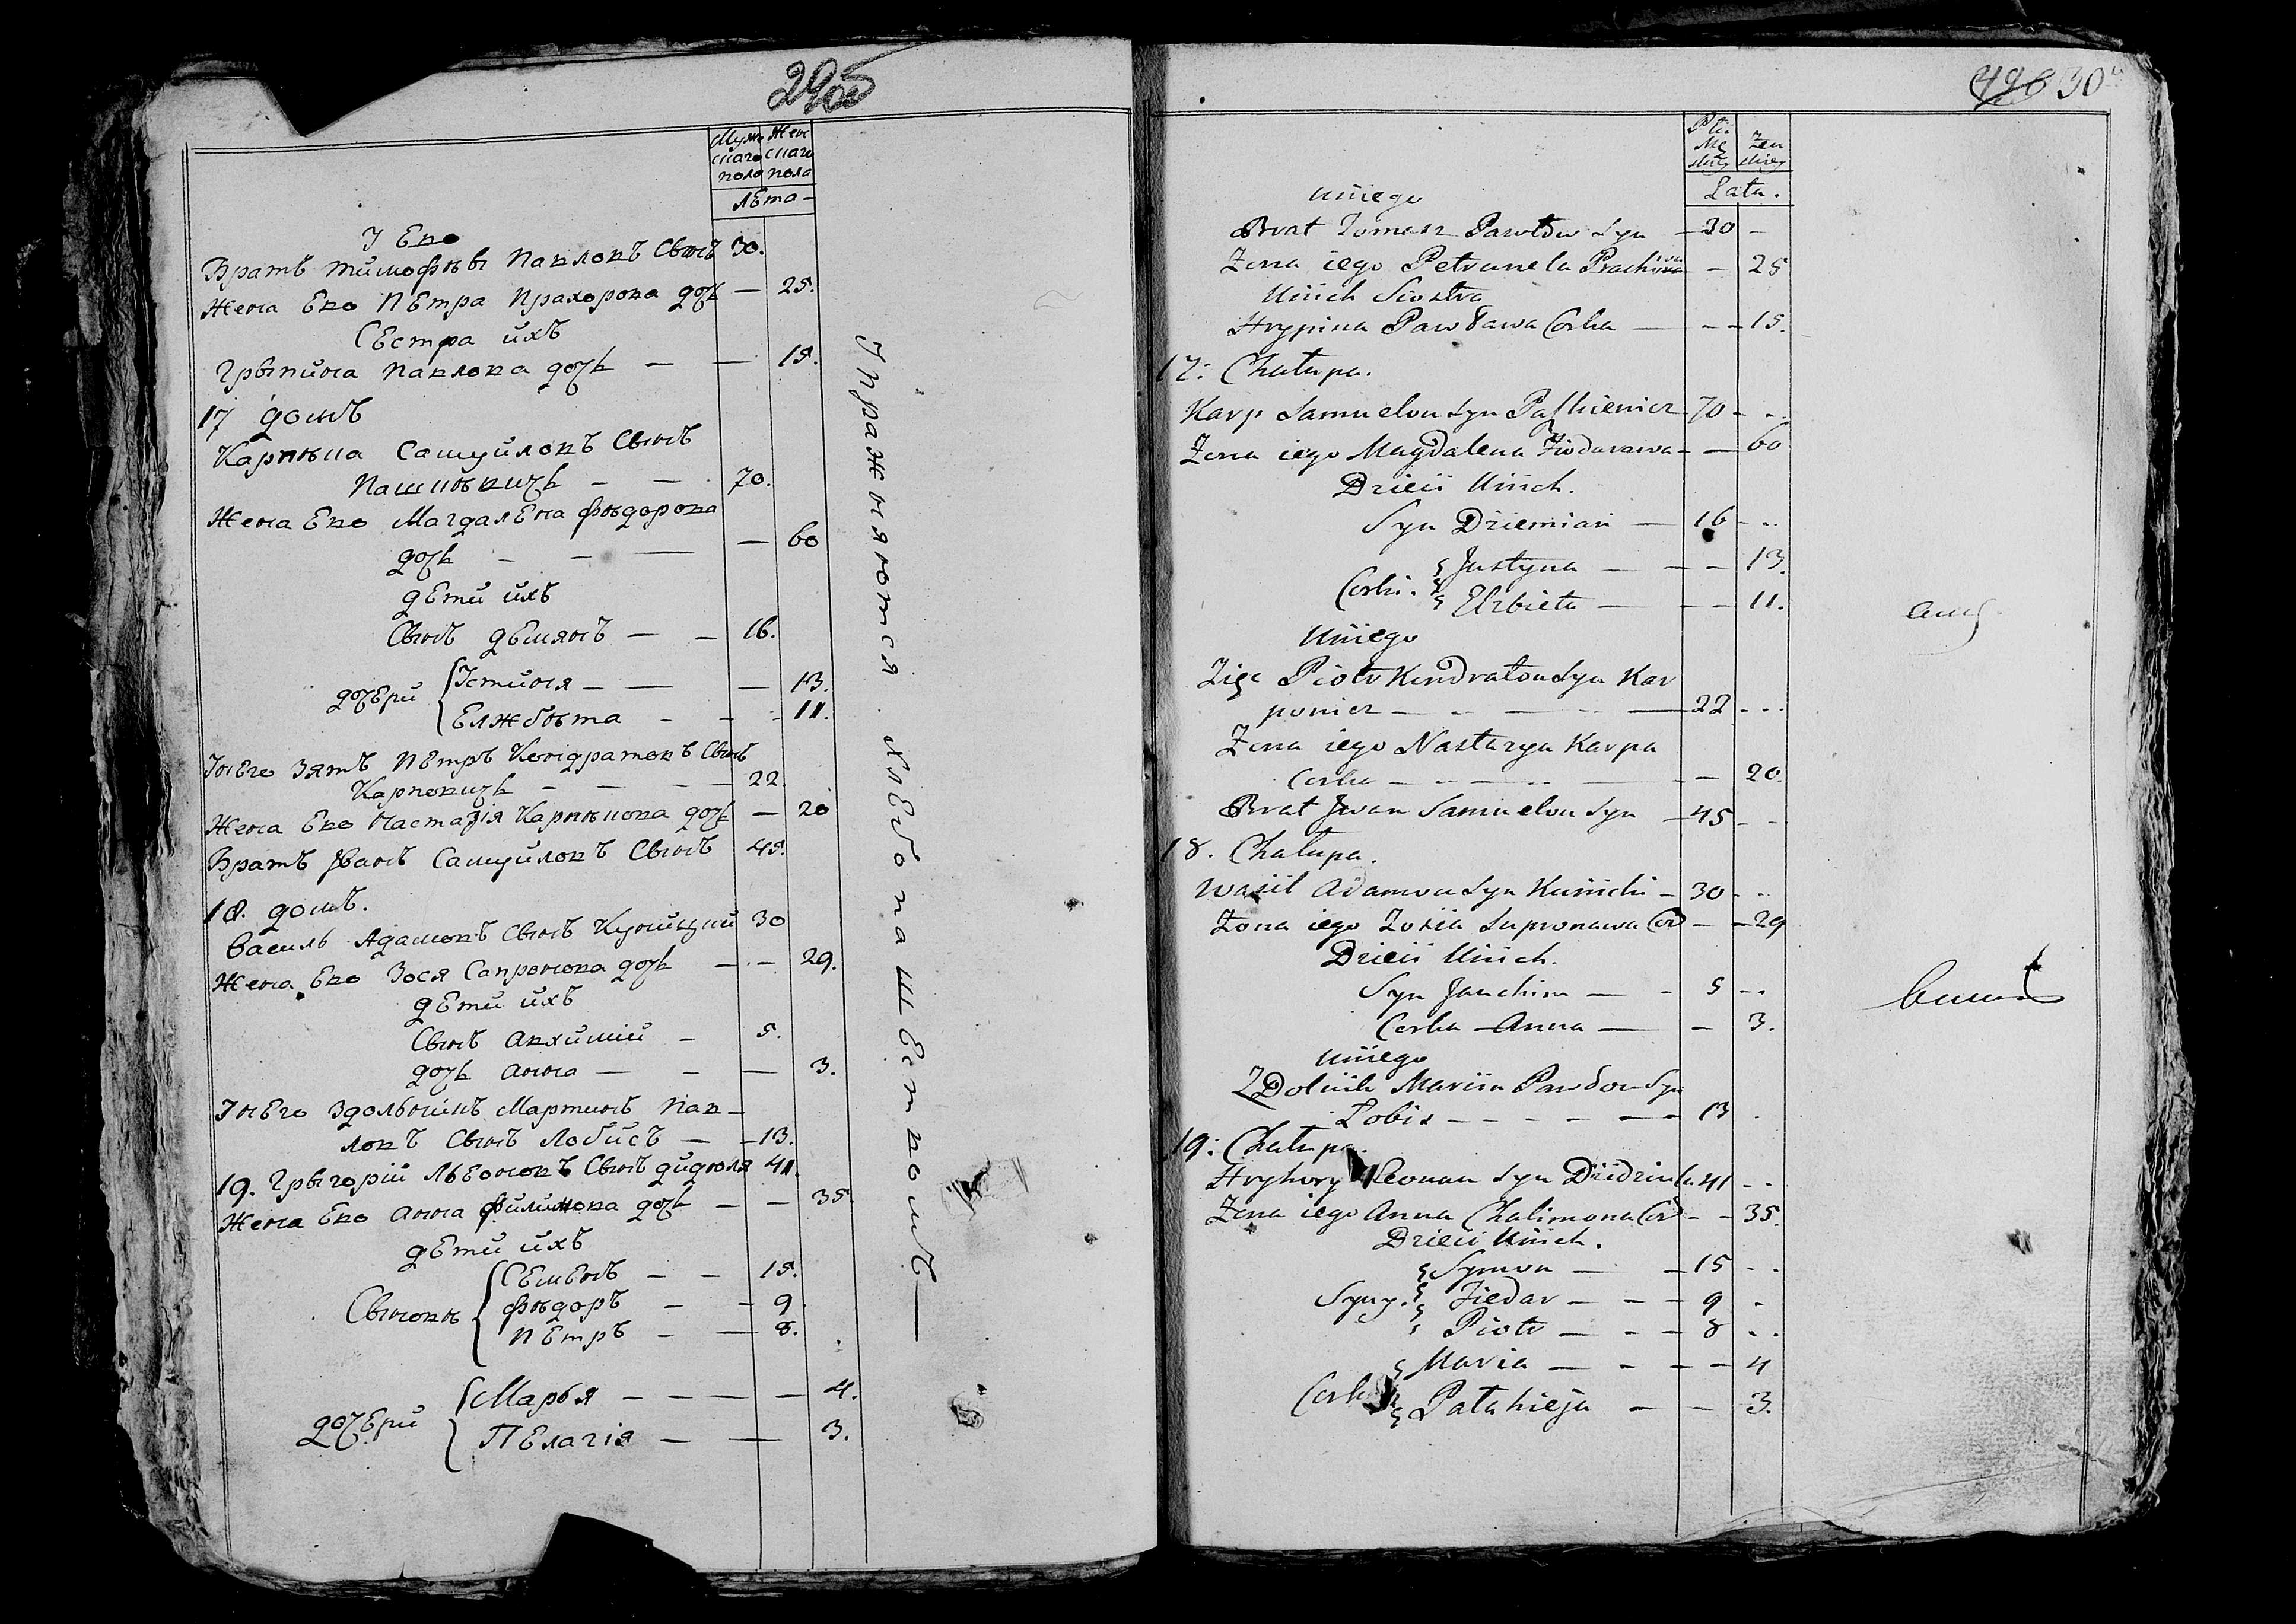 29об
Мужскаго пола Женскаго пола
лѣта
У Ево
Братъ тимофѣй павловъ Сынъ 30.
Жена Ево пЕтра прахорова дочь — 25.
СЕстра ихъ
Грыпина павлова дочь — — 15.
17 домъ
Карпѣла Самуйловъ Сынъ
пашкѣвичь — — 70.
Жена Ево МагдалЕна фѣдорова
дочь — — — 60
дЕти ихъ
Сынъ дЕмянъ — — 16.
дочЕри Устиня — — — 13.
Елжбѣта — — — 11.
УнЕго Зятъ пЕтръ Кондратовъ Сынъ
Карповичь — — — 22.
Жена Ево настазія Карпѣлова дочь — 20
Братъ Иванъ Самуйловъ Сынъ 45.
18. домъ.
Василь Адамовъ Сынъ Куницкий 30
Жена Ево Зося Сапронова дочь — — 29.
дЕти ихъ
Сынъ Авхимий — 5.
дочь анна — — — 3.
УнЕго Здольникъ Мартинъ пав-
ловъ Сынъ Лобисъ — — 13.
19. Грыгорій ЛЬвоновъ Сынъ дидюля 41.
Жена Ево анна филимонова дочь — — 35
дЕти ихъ
Сыновѣ СЕмЕонъ — — 15.
фѣдоръ — — 9.
пЕтръ — — 8.
дочЕри Марья — — — — 4.
ПЕлагія — — 3.
Упражняются хлЕбопашЕствомъ —
30
Płci Męskiey Żenskiey
Lata.
Uniego
Brat Tomasz Pawłow Syn — 30 —
Żona iego Petrunela — 25
Uiich Siostra
Hrypina Pawława Corka — — — 15.
17: Chałupa.
Karp Samuelow Syn Paszkiewicz 70 — ..
Żona iego Magdalena Fiodarawa — — 60
Dzieci Uiich.
Syn Dziemian — 16 — ..
Corki. Justyna — — — 13.
Elzbieta — — — 11.
Uniego
Zięc Piotr Kondratow Syn Kar
powicz — — — 22 ...
Żona iego Nastazya Karpa
Corka — — — 20.
Brat Jwan Samuelow Syn — 45 — —
18. Chałupa.
Wasil Adamow Syn Kunicki — 30 — ..
Żona iego Zosia Supronawa Cor — — 29
Dzieci Uiich.
Syn Jauchim — — 5 — ..
Corka Anna — — 3.
Uniego
ZDolnik Marcin Pawłow Syn
Łobis — — — — — 13 .
19: Chałupa.
Hryhory Leonau Syn Dzidziula 41 — ..
Żona iego Anna Chalimona Cor — — 35.
Dzieci Uiich.
Syny. Symon — — 15 — ..
Fiedar — — — 9 .
Piotr — — — 8 ..
Corki Maria — — — — 4
Pałahieja — — 3.